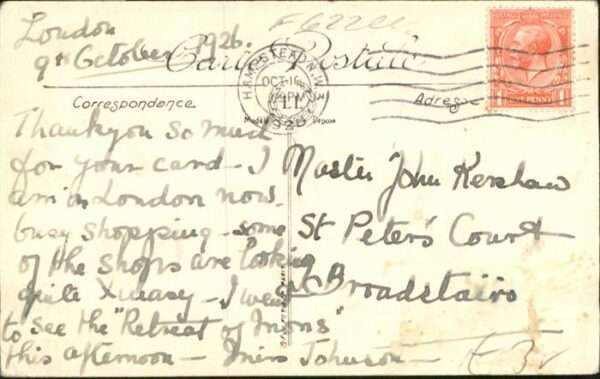 London
9th October 1926.
Carte Postale
Correspondance
Adresse
HAMPSTEAD N.W.
OCT
Modèle Déposé
1 PENNY 1
Thank you so much
for your card – I
am in London now.
busy shopping – some
of the shops are looking
quite Xmasy – I went
to see the "Retreat of Mons"
this afternoon – Miss Johnson –
Master John Kershaw
St Peter's Court
Broadstairs